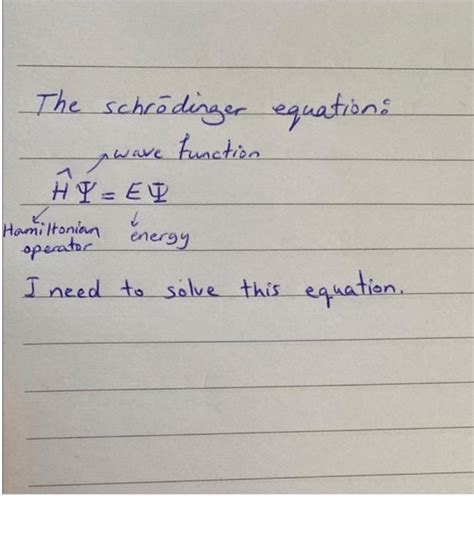 The schrödinger equation:
wave function
ĤΨ = EΨ
Hamiltonian energy
operator
I need to solve this equation.